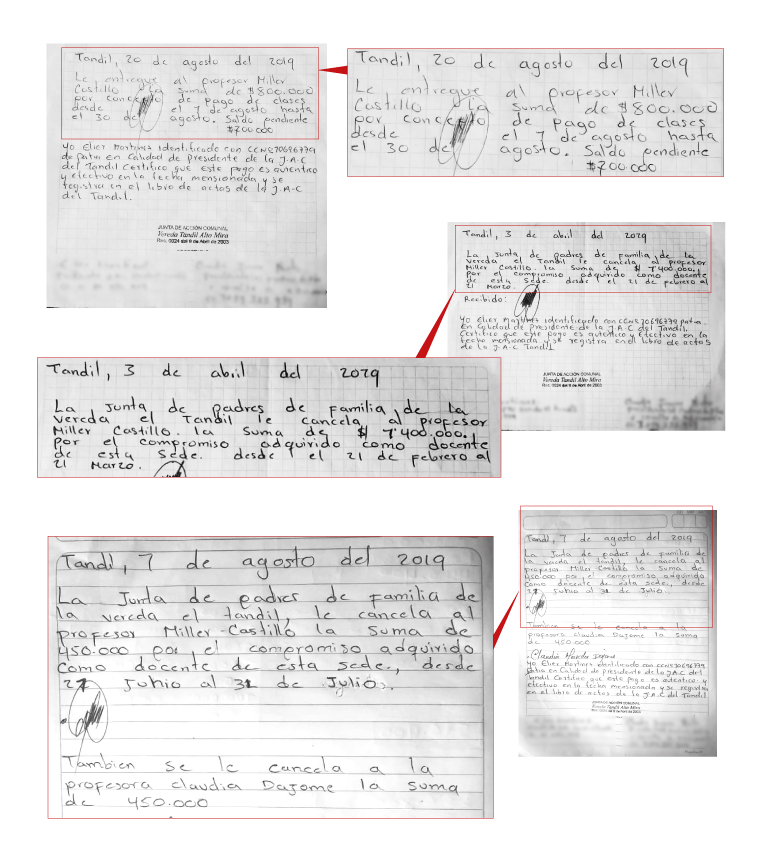 Tandil, 20 de agosto del 2019
Le entregue al profesor Miller
Castillo la suma de $800.000
por concepto de pago de clases
desde el 7 de agosto hasta
el 30 de agosto. Saldo pendiente
$700.000
Yo Elier Martinez identificado con
de Patia en Calidad de Presidente de la J.A.C
del Tandil Certifico que este pago es autentico
y efectivo en la fecha mensionada y se
registra en el libro de actas de la J.A.C
del Tandil.
JUNTA DE ACCIÓN COMUNAL
Vereda Tandil Alto Mira
Res. 0324 del 9 de Abril de 2003
Tandil, 20 de agosto del 2019
Le entregue al profesor Miller
Castillo la suma de $800.000
por concepto de pago de clases
desde el 7 de agosto hasta
el 30 de agosto. Saldo pendiente
$700.000
Tandil, 3 de abril del 2019
La Junta de padres de familia, de la
vereda el Tandil le cancela al profesor
Miller Castillo. la suma de $ 1'400.000.
por el compromiso adquirido como docente
de esta Sede. desde el 21 de febrero al
21 Marzo.
Recibido:
Yo Elier Martinez identificado con patia.
En Calidad de Presidente de la J.A.C del Tandil.
Certifico que este pago es autentico y efectivo en la
fecha mensionada y se registra en el libro de actas
de la J.A.C Tandil
JUNTA DE ACCIÓN COMUNAL
Vereda Tandil Alto Mira
Res. 0324 del 9 de Abril de 2003
Tandil, 3 de abril del 2019
La Junta de padres de familia, de la
vereda el Tandil le cancela al profesor
Miller Castillo. la suma de $ 1'400.000.
por el compromiso adquirido como docente
de esta Sede. desde el 21 de febrero al
21 Marzo.
Tandil, 7 de agosto del 2019
La Junta de padres de familia de
la vereda el tandil, le cancela al
profesor Miller Castillo la suma de
450.000 por el compromiso adquirido
como docente de esta sede, desde
27 Junio al 31 de Julio.
Tambien se le cancela a la
profesora claudia Dajome la suma
de 450.000
Claudia Dajome
Yo Elier Martinez identificado con
Patia en Calidad de presidente de la J.A.C del
Tandil Certifico que este pago es autentico y
efectivo en la fecha mensionada y se registra
en el libro de actas de la J.A.C del Tandil
JUNTA DE ACCIÓN COMUNAL
Vereda Tandil Alto Mira
Res. 0324 del 9 de Abril de 2003
Tandil, 7 de agosto del 2019
La Junta de padres de familia de
la vereda el tandil, le cancela al
profesor Miller-Castillo la suma de
450.000 por el compromiso adquirido
como docente de esta sede, desde
27 Junio al 31 de Julio.
Tambien se le cancela a la
profesora claudia Dajome la suma
de 450.000